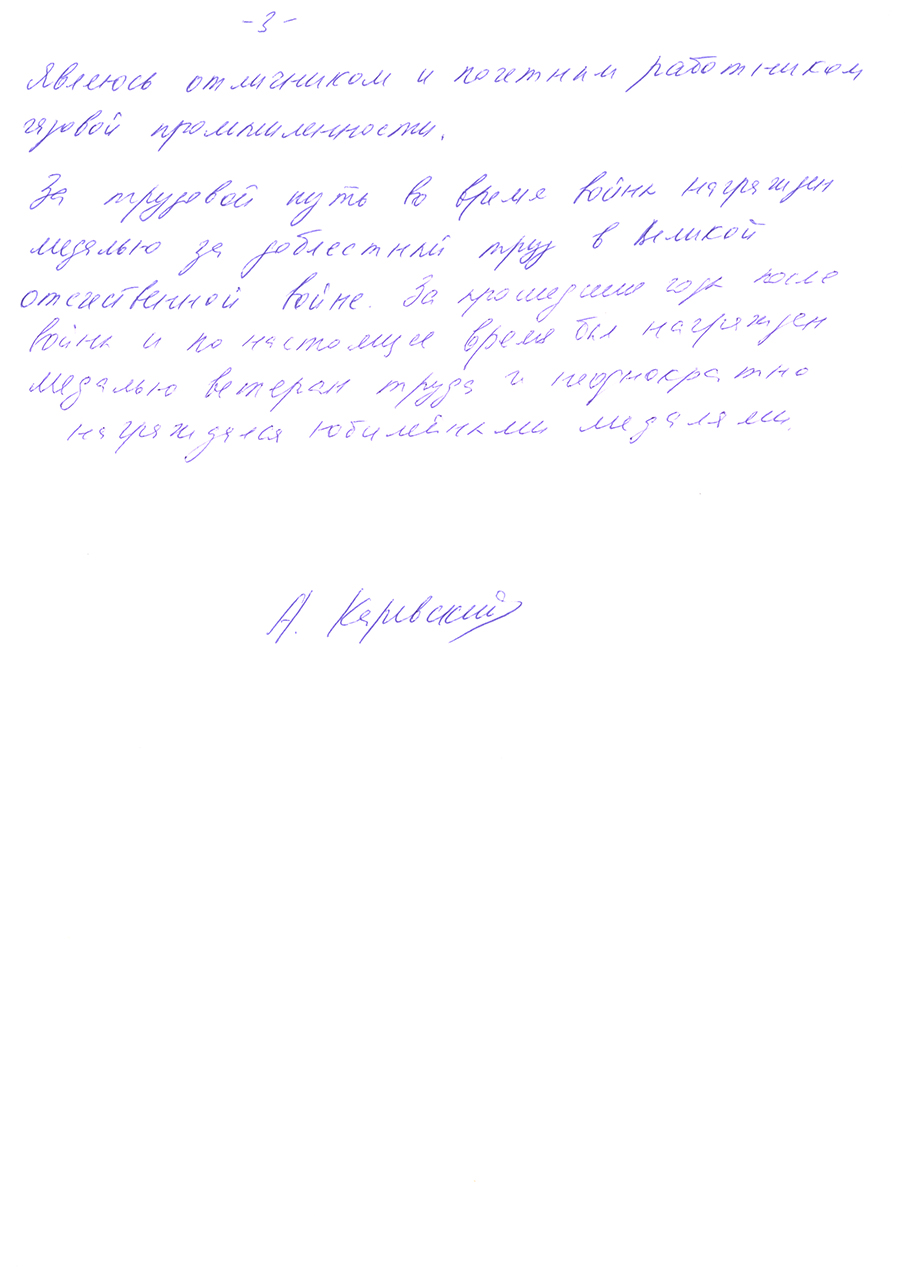 -3-
Являюсь отличником и почетным работником
газовой промышленности.
За трудовой путь во время войны награжден
медалью за доблестный труд в Великой
отечественной войне. За прошедшие годы после
войны и по настоящее время был награжден
медалью ветеран труда и неоднократно
награждался юбилейными медалями.
А. Каревский